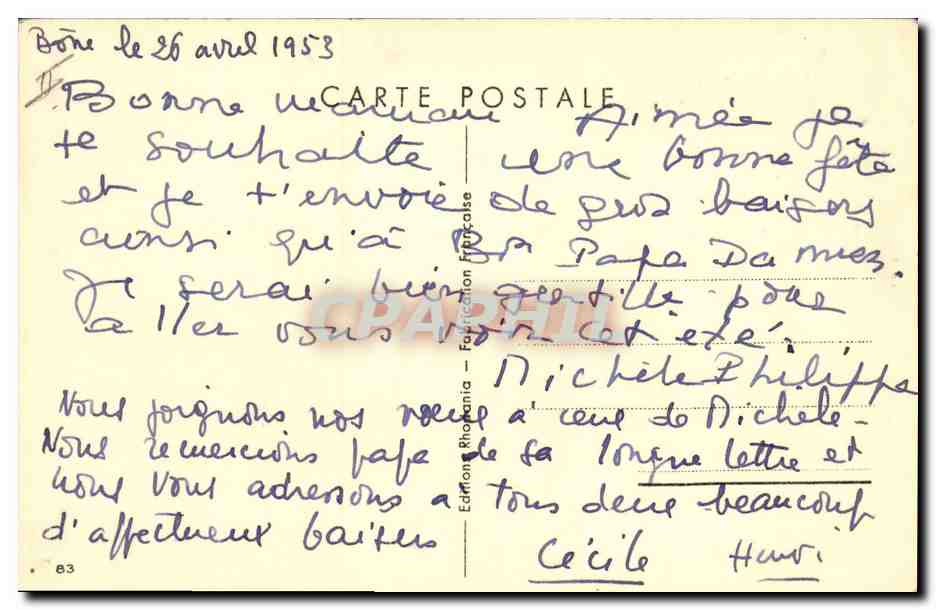 Bône le 26 avril 1953
II
CARTE POSTALE
Bonne maman Aimée je
te souhaite une bonne fête
et je t'envoie de gros baisers
ainsi qu'à Bon Papa Damien.
Je serai bien gentille pour
aller vous voir cet été.
Michèle Philippe
Nous joignons nos voeux à ceux de Michèle -
Nous remercions papa de sa longue lettre et
nous vous adressons a tous deux beaucoup
d'affectueux baisers
Cécile Henri
Editions Rhomania — Fabrication Française
CPAPHIL
83